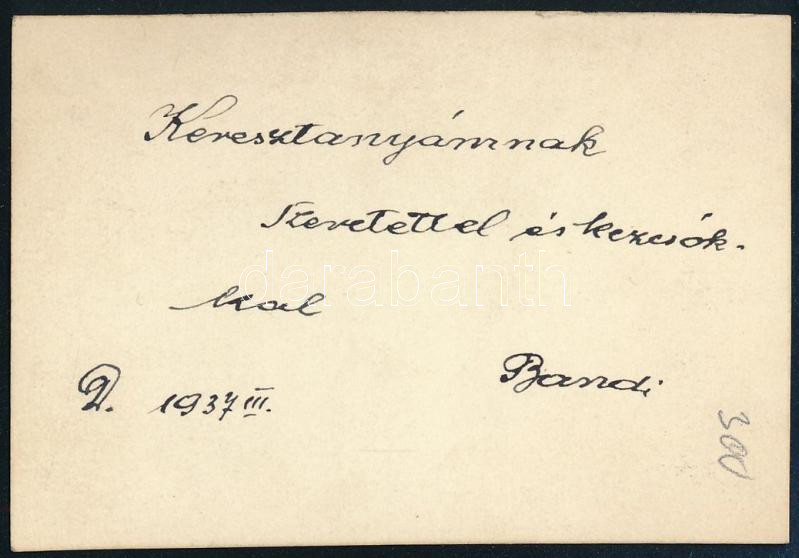 Keresztanyámnak
Szeretettel és kezcsók-
kal
Bandi
D. 1937 III.
300
darabanth